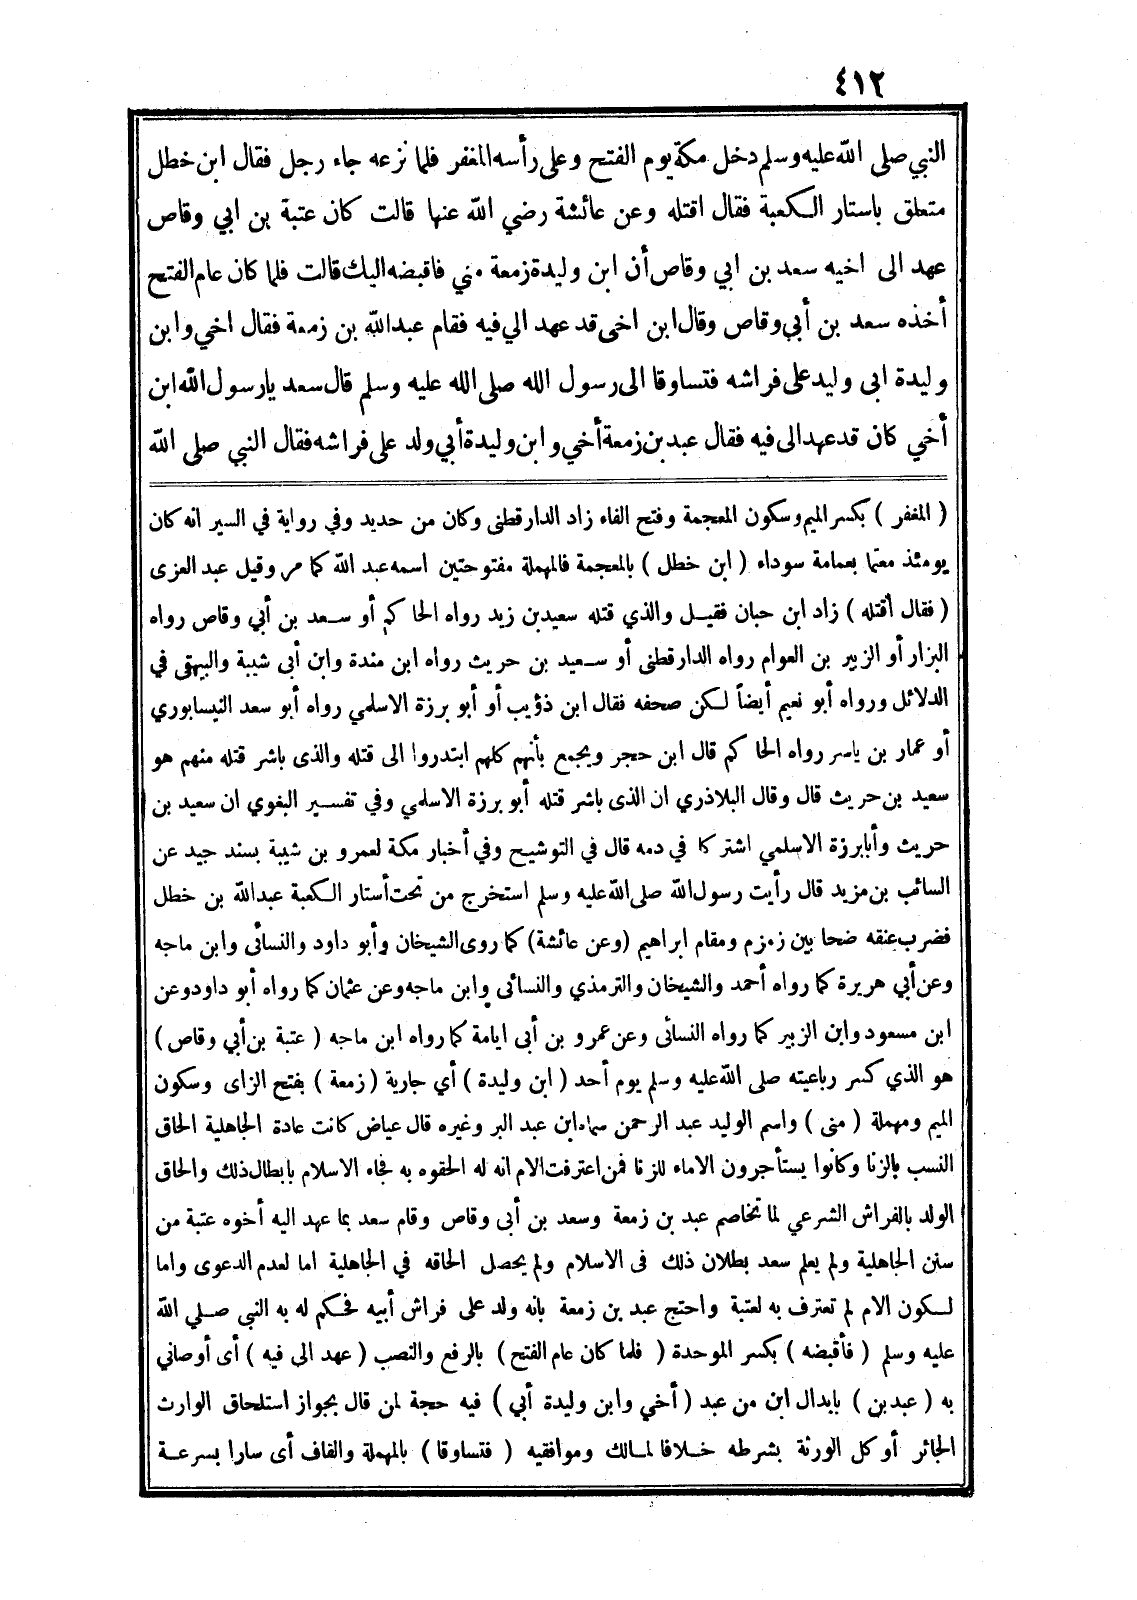 ٤١٢
النبي صلى الله عليه وسلم دخل مكة يوم الفتح وعلى رأسه المغفر فلما نزعه جاء رجل فقال ابن خطل
متعلق باستار الكعبة فقال اقتله وعن عائشة رضي الله عنها قالت كان عتبة بن ابي وقاص
عهد الى اخيه سعد بن ابي وقاص أن ابن وليدة زمعة مني فاقبضه اليك قالت فلما كان عام الفتح
أخذه سعد بن أبي وقاص وقال ابن اخى قد عهد الي فيه فقام عبد الله بن زمعة فقال اخي وابن
وليدة ابى وليد على فراشه فتساوقا الى رسول الله صلى الله عليه وسلم قال سعد يارسول الله ابن
أخي كان قد عهد الى فيه فقال عبد بن زمعة أخي وابن وليدة أبي ولد على فراشه فقال النبي صلى الله
( المغفر ) بكسر الميم وسكون المعجمة وفتح الفاء زاد الدارقطنى وكان من حديد وفي رواية في السير انه كان
يومئذ معتما بعمامة سوداء ( ابن خطل ) بالمعجمة فالمهملة مفتوحتين اسمه عبد الله كما مر وقيل عبد العزى
( فقال أقتله ) زاد ابن حبان فقيل والذي قتله سعيد بن زيد رواه الحاكم أو سعد بن أبي وقاص رواه
البزار أو الزبير بن العوام رواه الدارقطنى أو سعيد بن حريث رواه ابن مندة وابن أبى شيبة والبيهقى في
الدلائل ورواه أبو نعيم أيضاً لكن صحفه فقال ابن ذؤيب أو أبو برزة الاسلمي رواه أبو سعد النيسابوري
أو عمار بن ياسر رواه الحاكم قال ابن حجر ويجمع بأنهم كلهم ابتدروا الى قتله والذى باشر قتله منهم هو
سعيد بن حريث قال وقال البلاذري ان الذى باشر قتله أبو برزة الاسلمي وفي تفسير البغوي ان سعيد بن
حريث وأبابرزة الاسلمي اشتركا في دمه قال في التوشيح وفي أخبار مكة لعمرو بن شيبة بسند جيد عن
السائب بن مزيد قال رأيت رسول الله صلى الله عليه وسلم استخرج من تحت أستار الكعبة عبد الله بن خطل
فضرب عنقه ضحا بين زمزم ومقام ابراهيم (وعن عائشة) كما روى الشيخان وأبو داود والنسائى وابن ماجه
وعن أبي هريرة كما رواه أحمد والشيخان والترمذي والنسائى وابن ماجه وعن عثمان كما رواه أبو داود وعن
ابن مسعود وابن الزبير كما رواه النسائى وعن عمرو بن أبى ايامة كما رواه ابن ماجه ( عتبة بن أبي وقاص )
هو الذي كسر رباعيته صلى الله عليه وسلم يوم أحد ( ابن وليدة ) أي جارية ( زمعة ) بفتح الزاى وسكون
الميم ومهملة ( منى ) واسم الوليد عبد الرحمن سماه ابن عبد البر وغيره قال عياض كانت عادة الجاهلية الحاق
النسب بالزنا وكانوا يستأجرون الاماء للزنا فمن اعترفت الام انه له الحقوه به فجاء الاسلام بابطال ذلك والحاق
الولد بالفراش الشرعي لما تخاصم عبد بن زمعة وسعد بن أبى وقاص وقام سعد بما عهد اليه أخوه عتبة من
سنن الجاهلية ولم يعلم سعد بطلان ذلك فى الاسلام ولم يحصل الحاقه في الجاهلية اما لعدم الدعوى واما
لكون الام لم تعترف به لعتبة واحتج عبد بن زمعة بانه ولد على فراش أبيه فحكم له به النبي صلي الله
عليه وسلم ( فأقبضه ) بكسر الموحدة ( فلما كان عام الفتح ) بالرفع والنصب ( عهد الى فيه ) أى أوصاني
به ( عبد بن ) بابدال ابن من عبد ( أخي وابن وليدة أبي ) فيه حجة لمن قال بجواز استلحاق الوارث
الجائر أو كل الورثة بشرطه خلافا لمالك وموافقيه ( فتساوقا ) بالمهملة والقاف أى سارا بسرعة